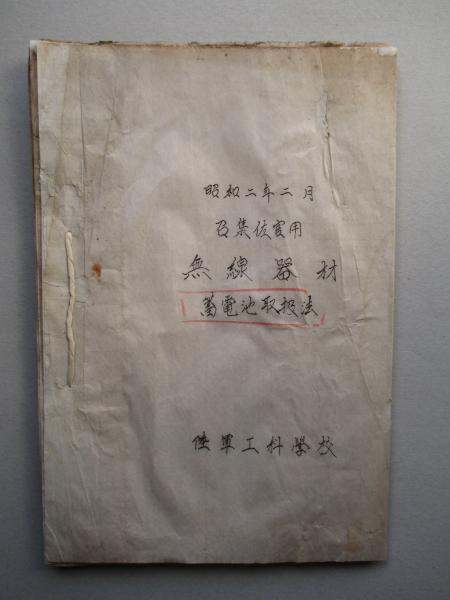 昭和二年二月
召集佐官用
無線器材
蓄電池取扱法
陸軍工科學校